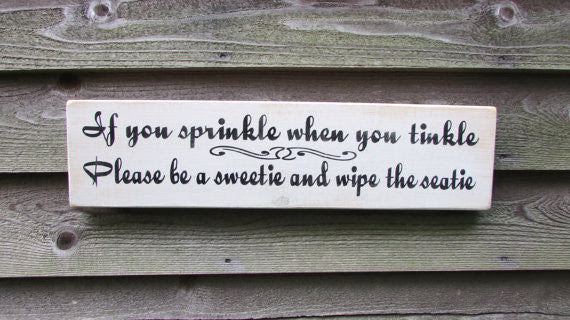 If you sprinkle when you tinkle
Please be a sweetie and wipe the seatie